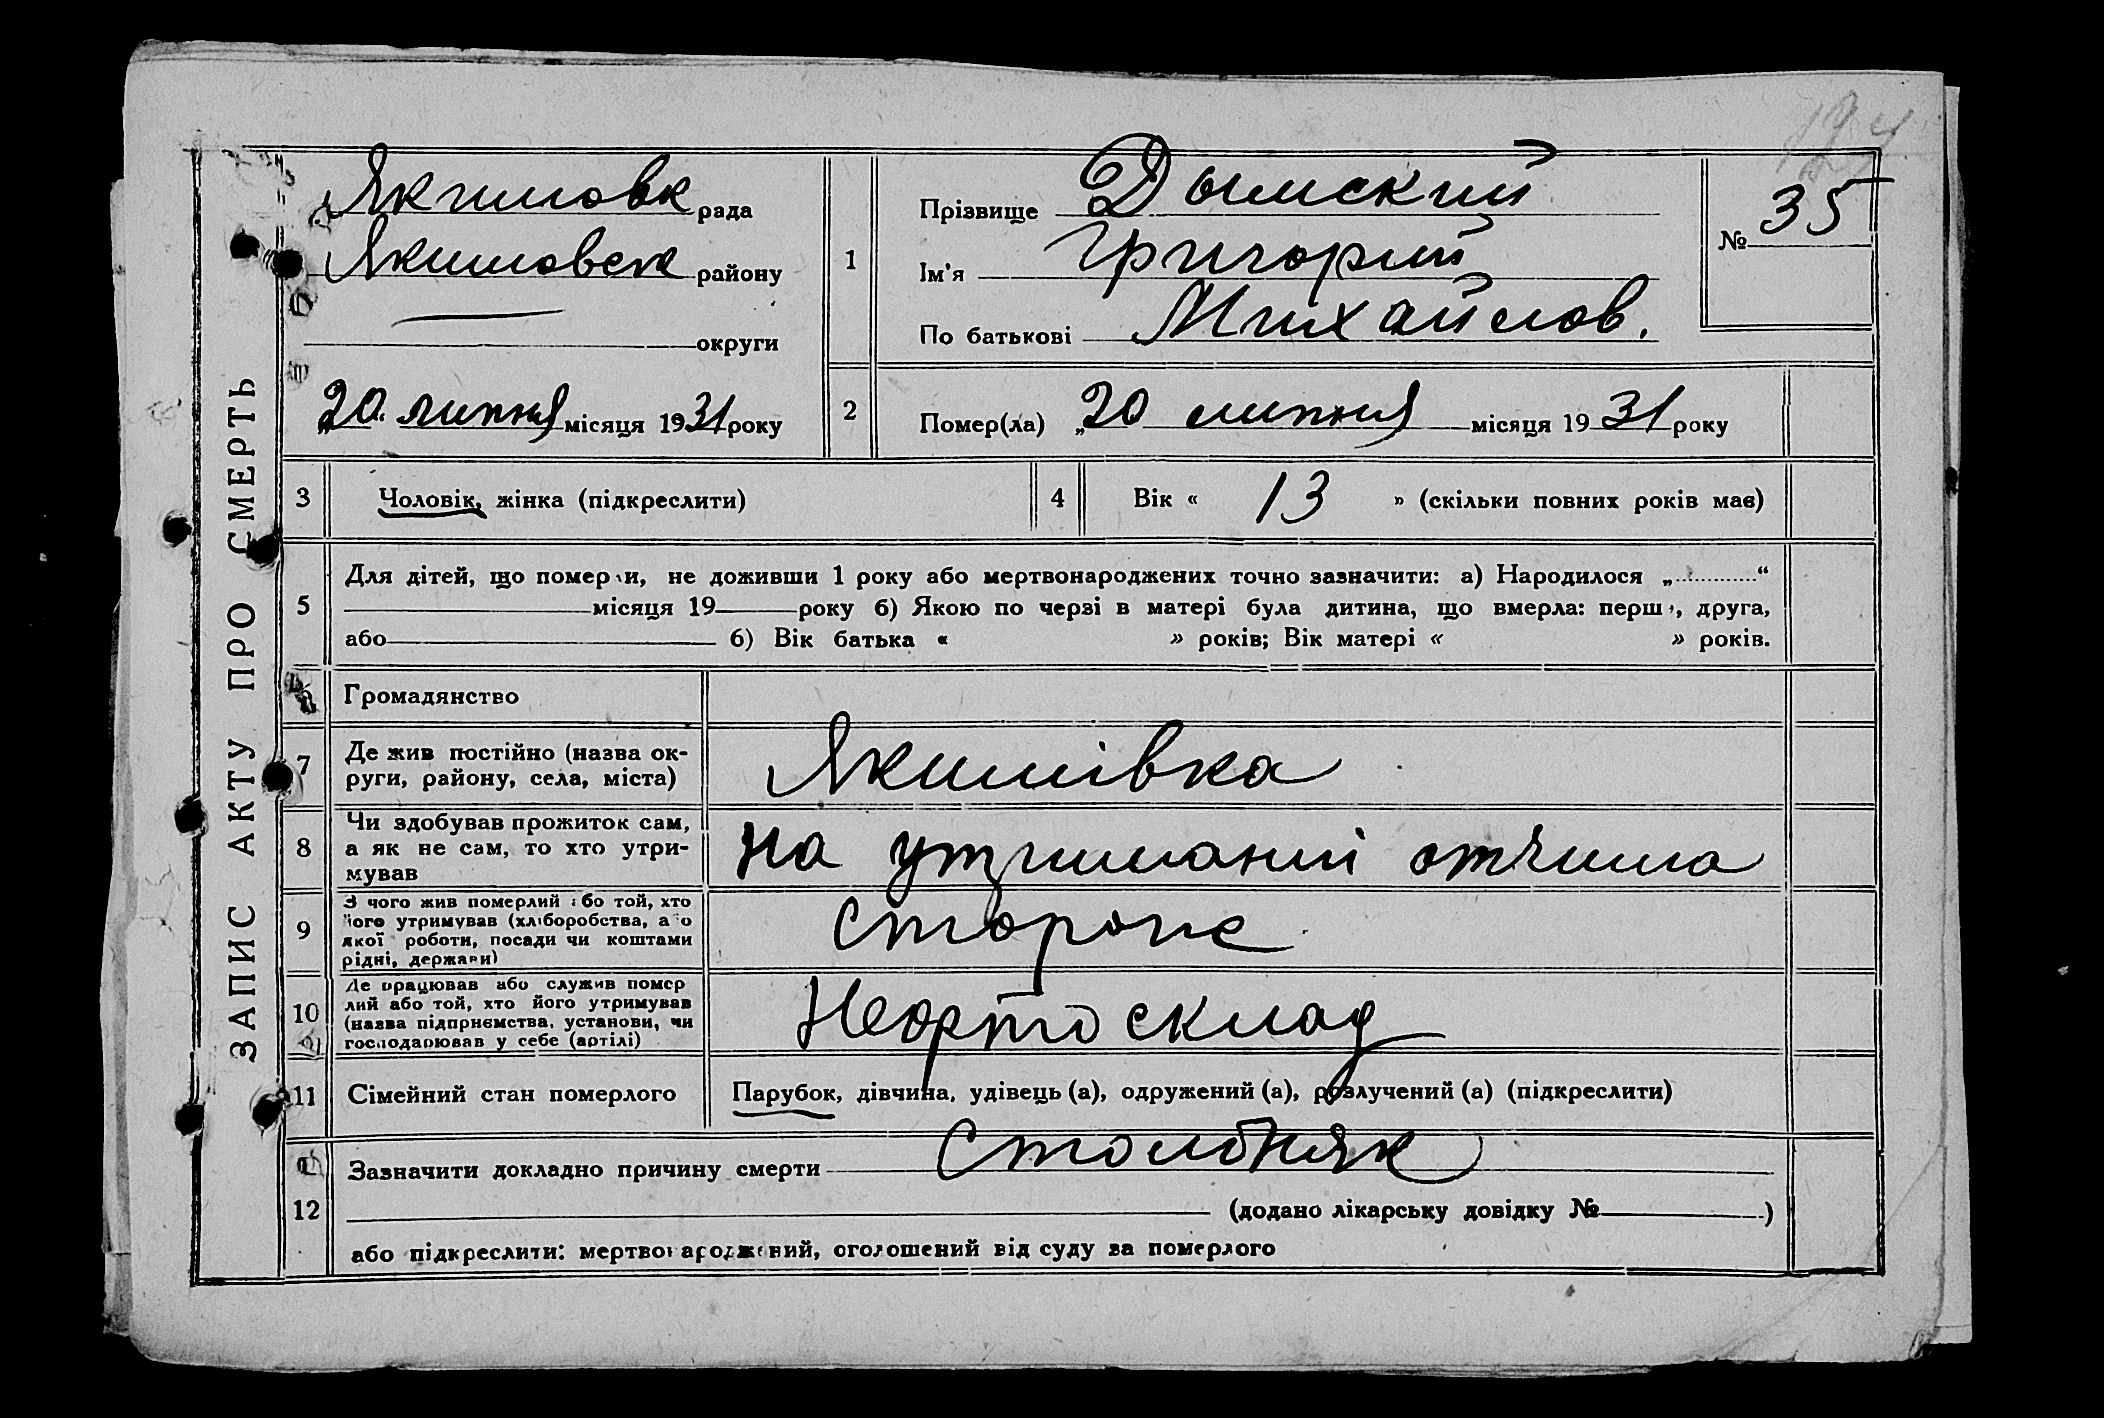 ЗАПИС АКТУ ПРО СМЕРТЬ
Якимовк рада
Якимовск району
округи
„20 липня місяця 1931 року
1
Прізвище Дымский
Ім'я Григорий
По батькові Михайлов.
№ 35
2
Помер(ла) „20 липня місяця 1931 року
3 Чоловік, жінка (підкреслити)
4 Вік « 13 » (скільки повних років має)
5
Для дітей, що померли, не доживши 1 року або мертвонароджених точно зазначити: а) Народилося „ “
місяця 19 року б) Якою по черзі в матері була дитина, що вмерла: перша, друга,
або б) Вік батька « » років; Вік матері « » років.
6 Громадянство
7 Де жив постійно (назва ок-
руги, району, села, міста)
Якимівка
8 Чи здобував прожиток сам,
а як не сам, то хто утри-
мував
на утриманні отчима
9 З чого жив померлий або той, хто
його утримував (хліборобства, або
якої роботи, посади чи коштами
рідні, держави)
сторож
10 Де працював або служив помер
лий або той, хто його утримував
(назва підприємства, установи, чи
господарював у себе (артілі)
Нефтосклад
11 Сімейний стан померлого
Парубок, дівчина, удівець (а), одружений (а), розлучений (а) (підкреслити)
12
Зазначити докладно причину смерти Столбняк
(додано лікарську довідку № )
або підкреслити: мертвонароджений, оголошений від суду за померлого